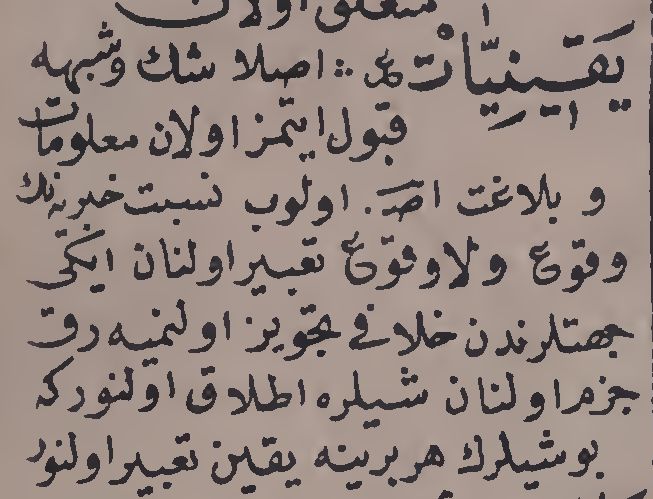 متعلق اولان
يَقِينِيَّاتْ ع ؞ اصلا شك وشبهه
قبول ايتمز اولان معلومات
و بلاغت اصـ . اولوب نسبت خبريه نك
وقوع ولا وقوع تعبير اولنان ايكى
جهتلرندن خلافى تجويز اولنميه رق
جزم اولنان شيلره اطلاق اولنوركه
بوشيلرك هر برينه يقين تعبير اولنور